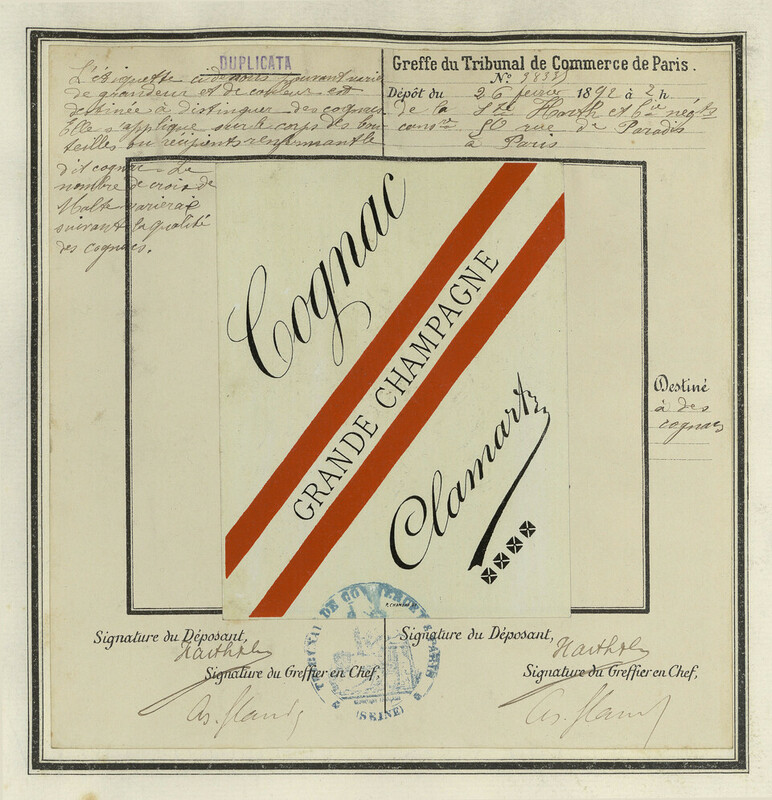 DUPLICATA
L'étiquette ci-dessus pouvant varier
de grandeur et de couleur est
destinée à distinguer des cognacs
Elle s'applique sur le corps des bou-
teilles ou récipients renfermant le
dit cognac. Le
nombre de croix de
Malte variera
suivant la qualité
des cognacs.
Greffe du Tribunal de Commerce de Paris.
No.
Dépôt du 26 fevrier 1892 à 2 h
de la Sté et Cie négts
50 rue de Paradis
à Paris
Cognac
GRANDE CHAMPAGNE
Clamart
Destiné
à des
cognacs
TRIBUNAL DE COMMERCE PARIS
(SEINE)
Signature du Déposant,
Signature du Greffier en Chef,
Signature du Déposant,
Signature du Greffier en Chef,